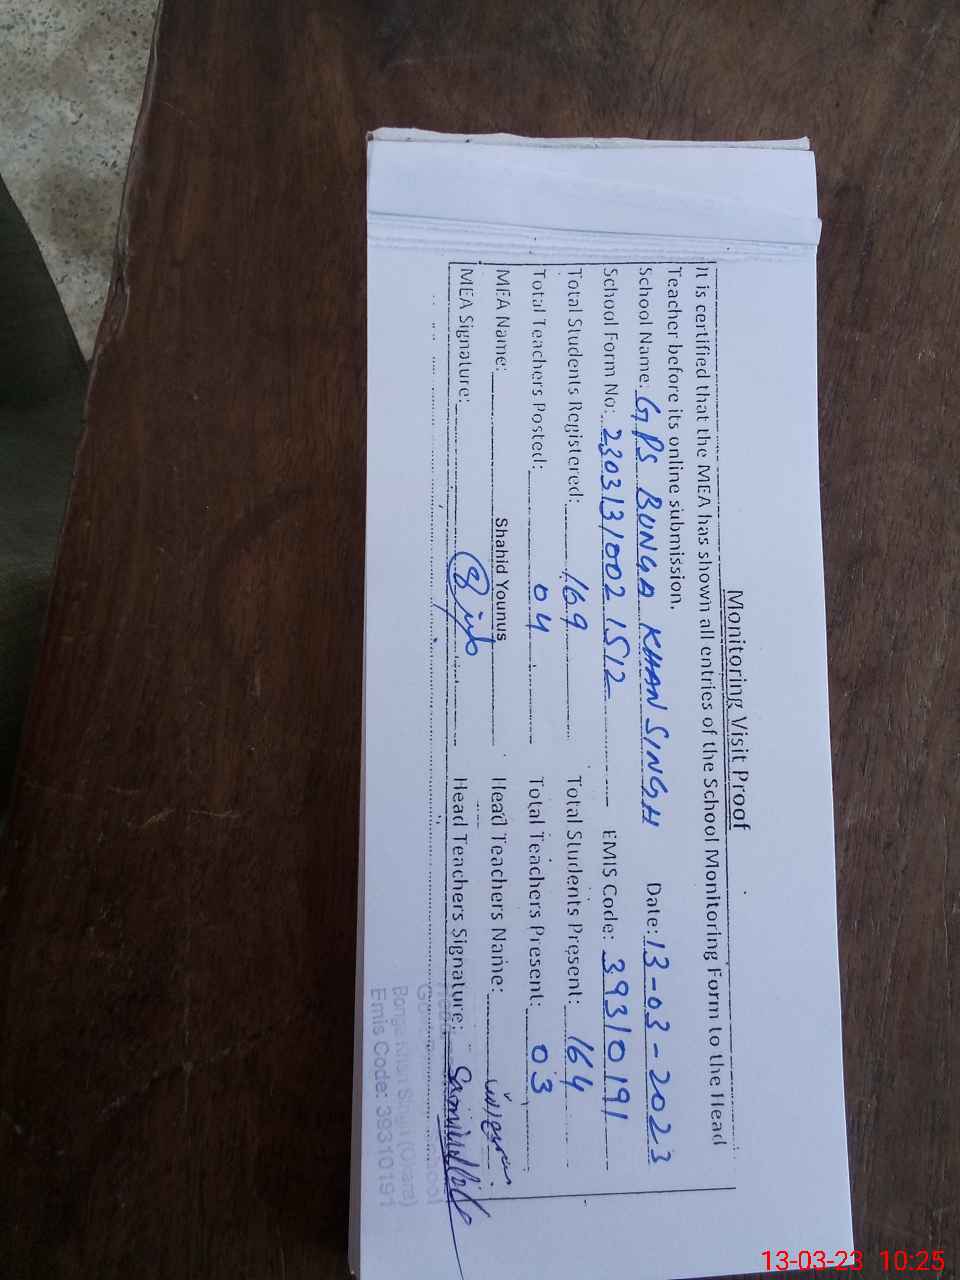 Monitoring Visit Proof
It is certified that the MEA has shown all entries of the School Monitoring Form to the Head
Teacher before its online submission.
School Name: GPS BUNGA KHAN SINGH Date: 13-03-2023
School Form No: 2303131002 1512 EMIS Code: 39310191
Total Students Registered: 169 Total Students Present: 164
Total Teachers Posted: 04 Total Teachers Present: 03
MEA Name: Shahid Younus Head Teachers Name:
MEA Signature: Head Teachers Signature:
Emis Code: 39310191
13-03-23 10:25